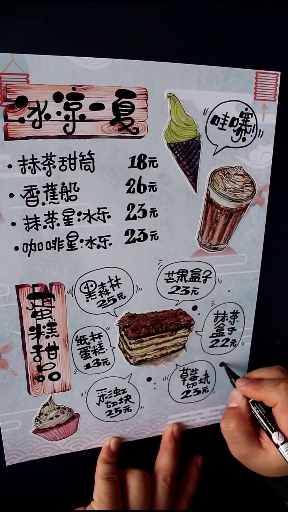 冰凉一夏
哇塞
·抹茶甜筒 18元
·香蕉船 26元
·抹茶星冰乐 23元
·咖啡星冰乐 23元
蛋糕甜品
黑森林
25元
芒果盒子
23元
纸杯
蛋糕
13元
抹茶
盒子
22元
彩虹
切块
25元
草莓
切块
23元